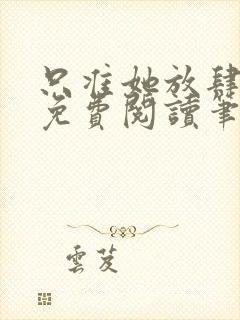 只准她放肆
免費閱讀筆
雲芨